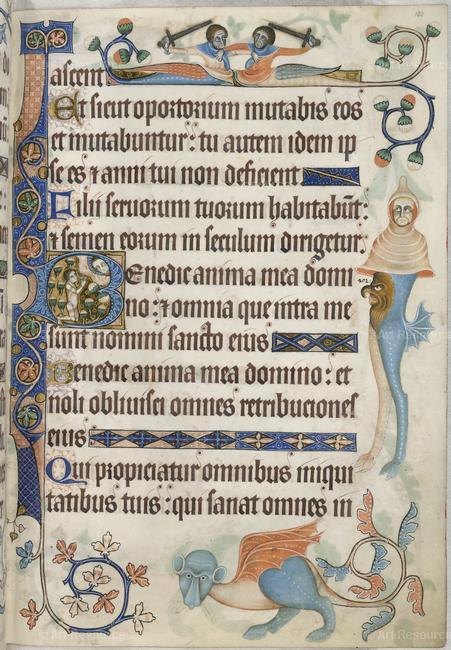 ascent.
Et sicut oportorium mutabis eos
et mutabuntur: tu autem idem ip
se es ⁊ anni tui non deficient
Filii seruorum tuorum habitabūt:
⁊ semen eorum in seculum dirigetur.
Benedic anima mea domi
no: ⁊ omnia que intra me
sunt nomini sancto eius
Benedic anima mea domino: et
noli obliuisci omnes retribuciones
eius
Qui propiciatur omnibus iniqui
tatibus tuis: qui sanat omnes in
Art Resource